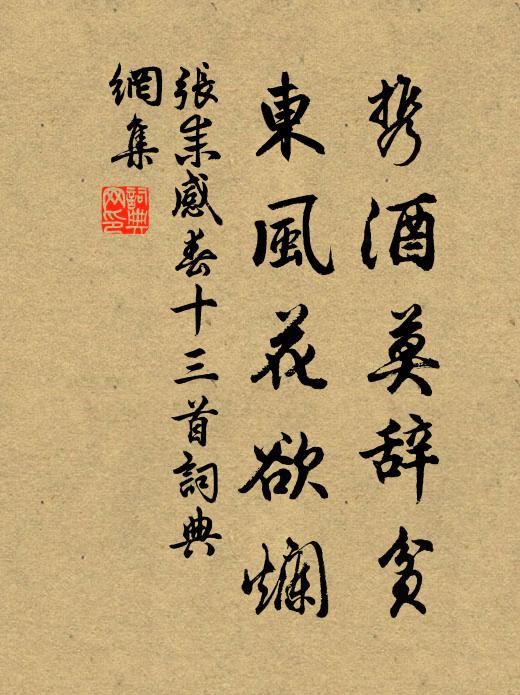 携酒莫辞贫
東風花欲爛
張耒感春十三首詞典
網集
詞典網印